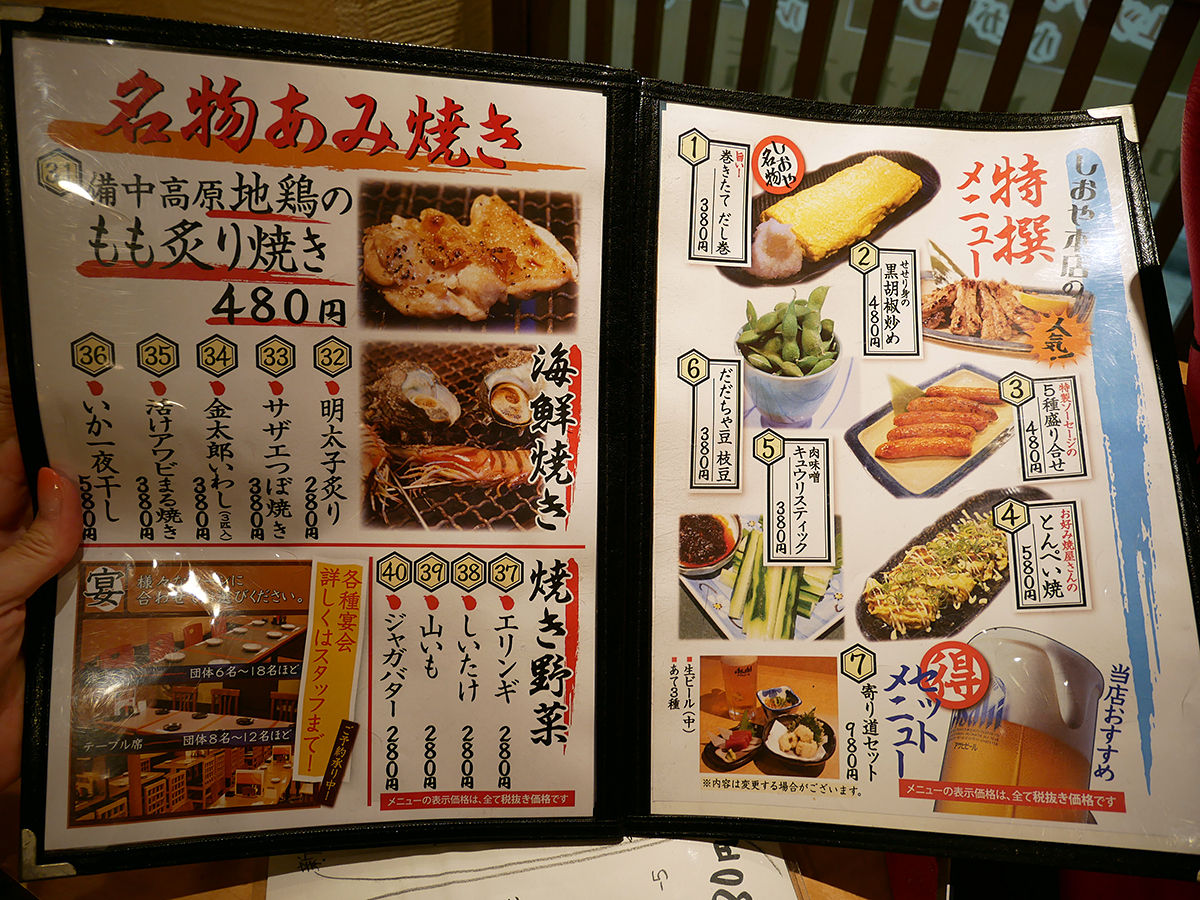 名物あみ焼き
31
備中高原地鶏の
もも炙り焼き
480円
海鮮焼き
32
明太子炙り
280円
33
サザエつぼ焼き
380円
34
金太郎いわし(3匹入)
380円
35
活けアワビまる焼き
380円
36
いか一夜干し
580円
焼き野菜
37
エリンギ
280円
38
しいたけ
280円
39
山いも
280円
40
ジャガバター
280円
メニューの表示価格は、全て税抜き価格です
宴
様々な
に
合わせ
びください。
団体6名〜18名ほど
テーブル席
団体8名〜12名ほど
各種宴会
詳しくはスタッフまで！
ご予約承り中
しおや本店の
特撰
メニュー
人気！
しおや
名物
1
旨い！
巻きたて だし巻
380円
2
せせり身の
黒胡椒炒め
480円
3
特製ソーセージの
5種盛り合せ
480円
4
お好み焼屋さんの
とんぺい焼
580円
5
肉味噌
キュウリスティック
380円
6
だだちゃ豆 枝豆
380円
当店おすすめ
得
セット
メニュー
7
寄り道セット
980円
■生ビール(中)
■あて3種
※内容は変更する場合がございます。
Asahi
アサヒビール
メニューの表示価格は、全て税抜き価格です